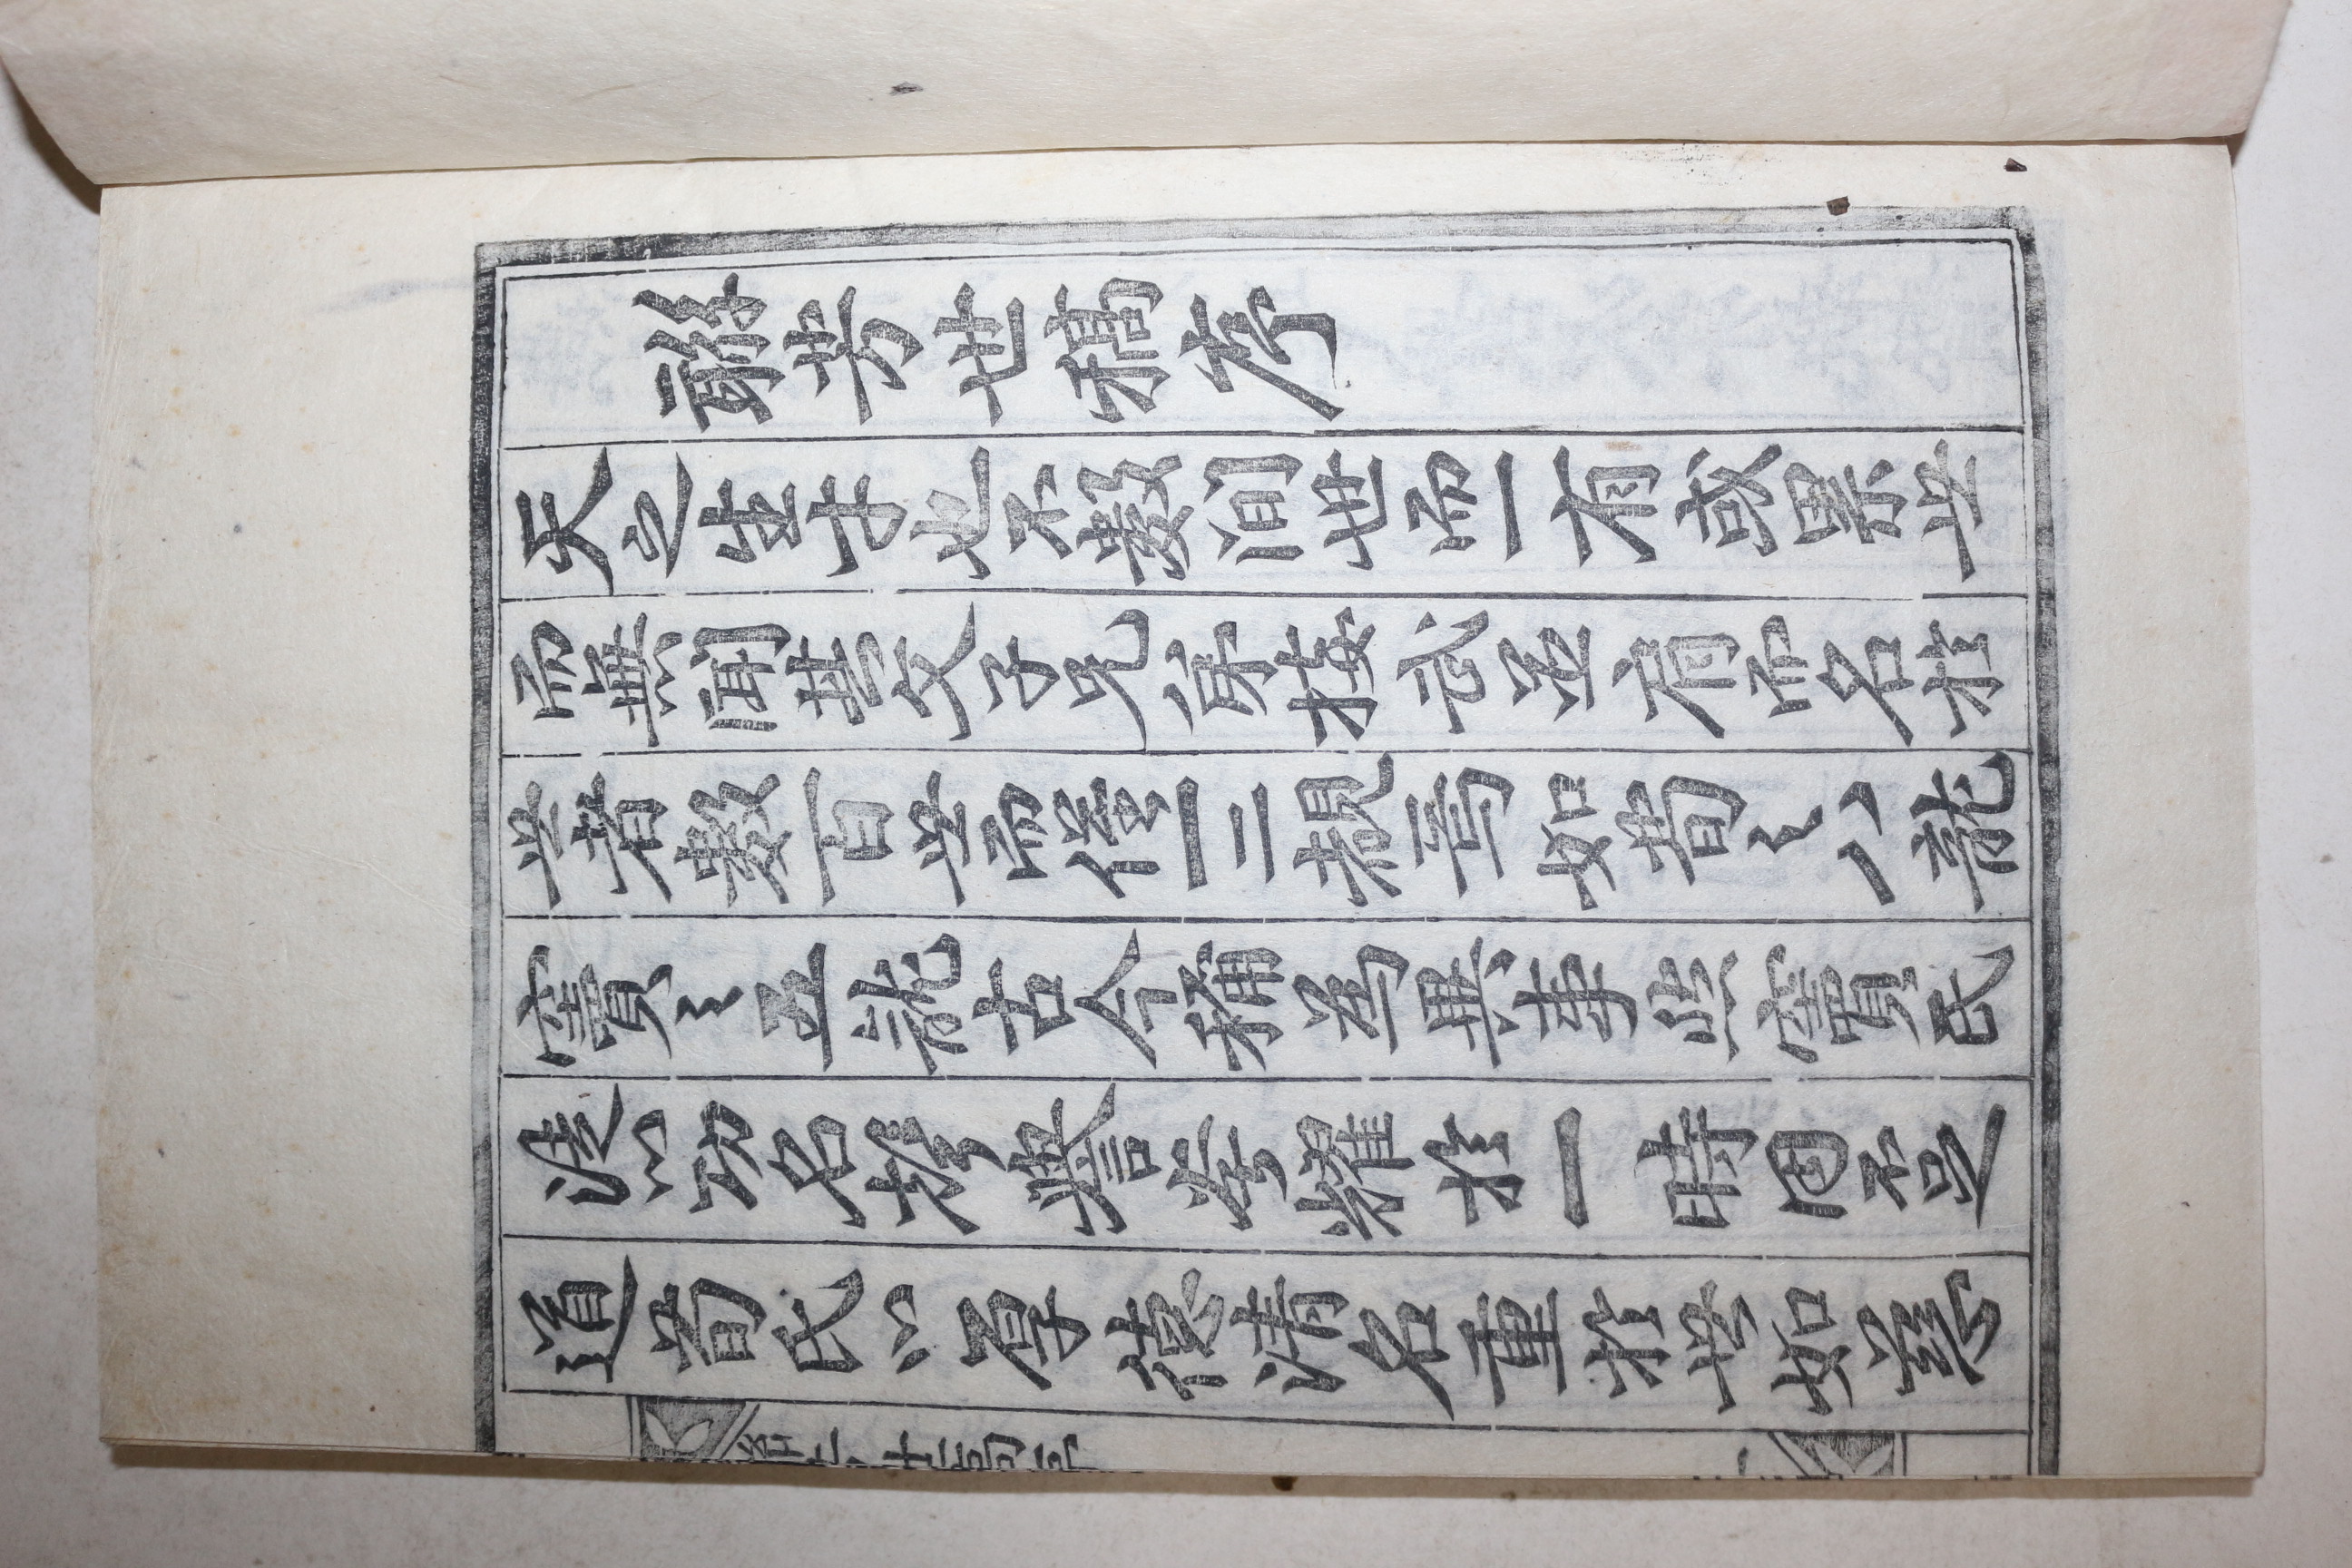 聮芳世稿序
天之生才也不數間世而一有或累世
而無聞其父子兄弟接武並肩而名於
世者數百世而僅一二覩焉如荀之八龍
竇之五龍古今稱為異事然竇氏
徒以功名聲譽夸耀於一時固不足
道荀氏以厚德清名重於世如慈